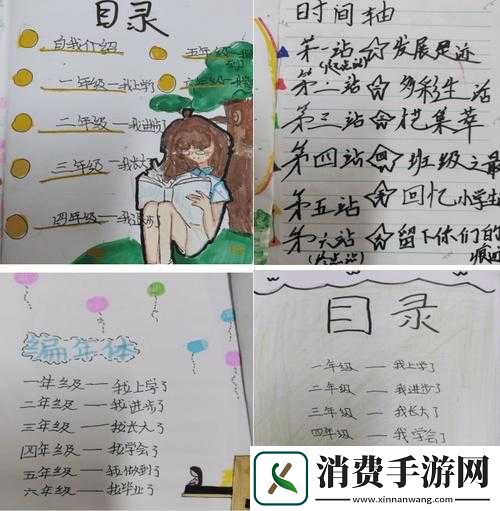 目录
自我介绍
五年级一我
一年级一我上学了
二年级一我进步了
三年级一我长大
四年级一我
时间轴
第一站 发展足迹
第二站 多彩生活
第三站 艺集萃
第四站 班级之最
第五站 回忆小学生
第六站 留下你们的
痕迹
编年体
一年级——我上学了
二年级——我进步了
三年级——我长大了
四年级——我学会了
五年级——我做到了
六年级——我毕业了
目录
一年级 — 我上学了
二年级 — 我进步了
三年级 — 我长大了
四年级 — 我学会了
消费手游网
www.xinnanwang.com